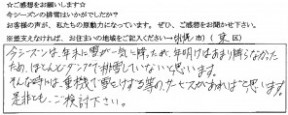 ☆ご感想をお願いします☆
今シーズンの排雪はいかがでしたか?
お客様の声が、私たちの原動力になっています。ぜひ、ご感想をお聞かせ下さい。
※差支えなければ、お住まいの地域をご記入ください→(札幌)市(東)区
今シーズンは、年末に雪が一気に降ったため、年明けはあまり降らなかった
ため、ほとんどダンプで排雪していないと思います。
そんな時には、重機で雪をけずる等のサービスがあればと思います。
是非とも、ご検討下さい。